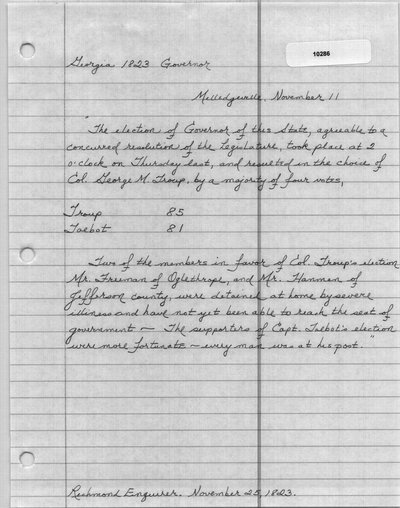 10286
Georgia 1823 Governor
Milledgeville, November 11
"The election of Governor of this State, agreeable to a
concurred resolution of the Legislature, took place at 2
o'clock on Thursday last, and resulted in the choice of
Col. George M. Troup, by a majority of four votes,
Troup 85
Talbot 81
Two of the members in favor of Col. Troup's election
Mr. Freeman of Oglethrope, and Mr. of
Jefferson county, were detained at home by severe
illness and have not yet been able to reach the seat of
government — The supporters of Capt. Talbot's election
were more fortunate — every man was at his post."
Richmond Enquirer. November 25, 1823.